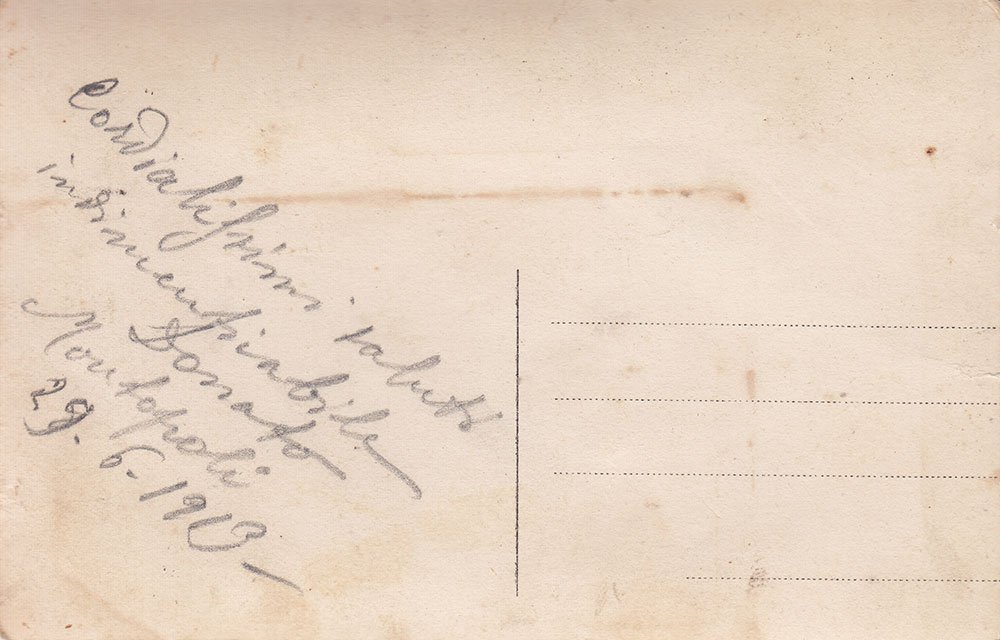 Cordialissimi saluti
indimenticabile
Donato
Montopoli
29. 6. 1913